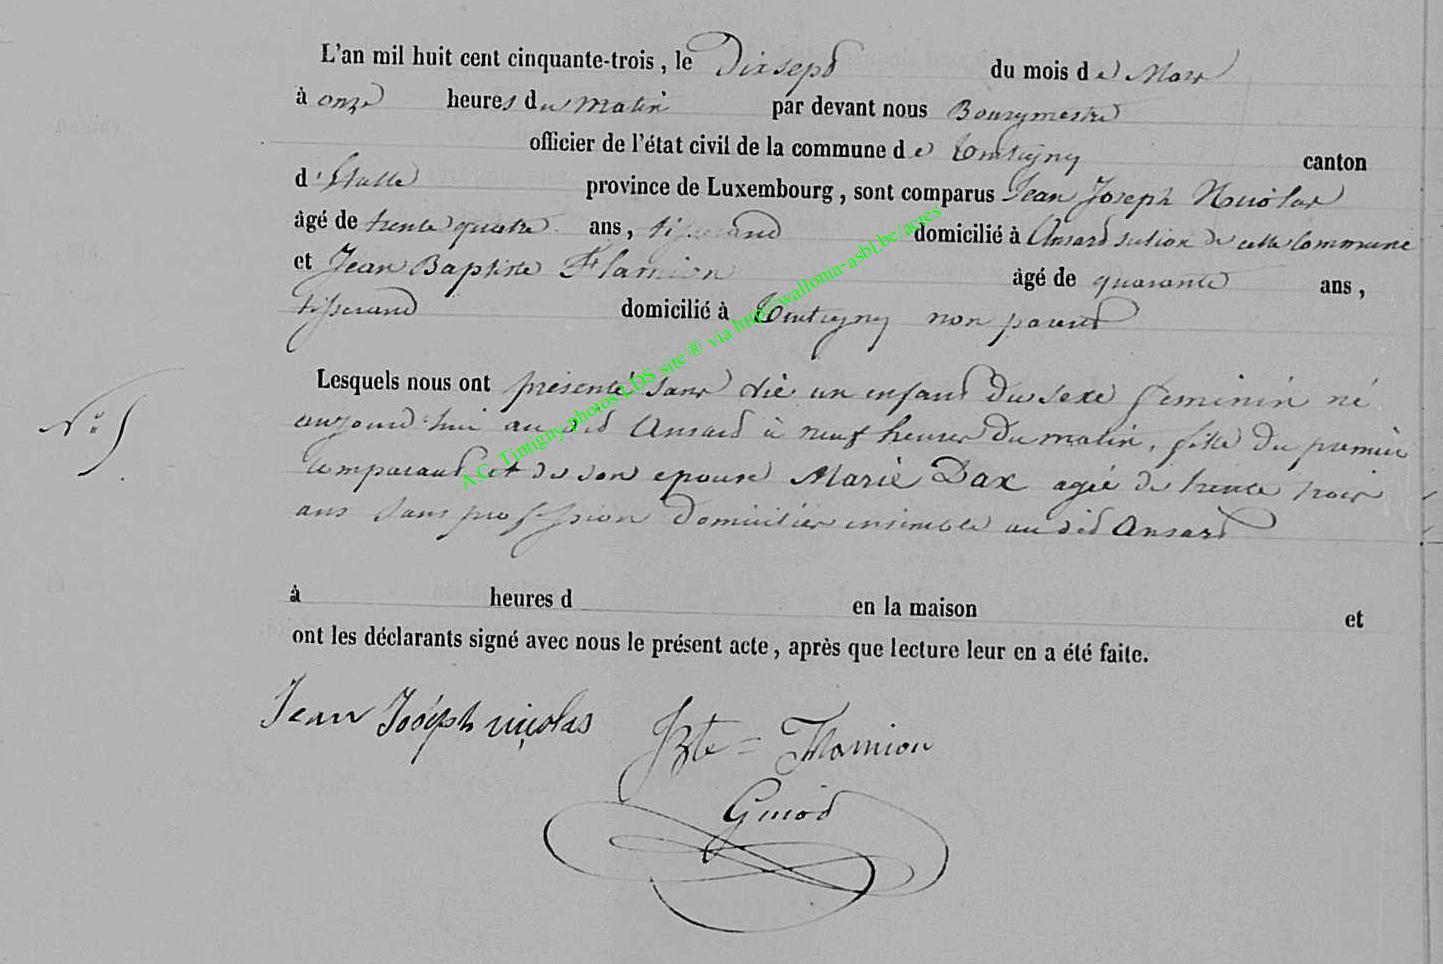 L'an mil huit cent cinquante-trois, le Dix sept du mois de Mars
à onze heures du matin par devant nous Bourgmestre
officier de l'état civil de la commune de Tintigny canton
d'Etalle province de Luxembourg, sont comparus Jean Joseph Nicolas
âgé de trente quatre ans, tisserand domicilié à Ansard section de cette Commune
et Jean Baptiste Flamion âgé de quarante ans,
tisserand domicilié à Tintigny non parent
Lesquels nous ont présenté sans vie un enfant du sexe feminin né
N° 5
aujourd'hui au dit Ansard à neuf heures du matin, fille du premier
comparant et de son epouse Marie Dax agée de trente trois
ans sans profession domiciliés ensemble au dit Ansard
à heures d en la maison et
ont les déclarants signé avec nous le présent acte, après que lecture leur en a été faite.
Jean Joséph nicolas JBte = Flamion
A.C. Tintigny photos LDS site ® via http://wallonia-asbl.be/actes